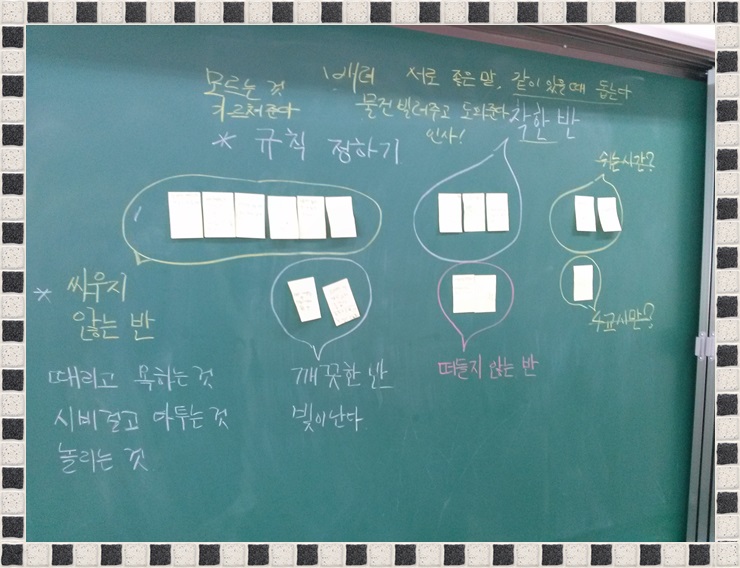 모르는 것
가르쳐준다
배려
서로 좋은 말, 같이 있을 때 돕는다
물건 빌려주고 도와준다
인사!
착한 반
* 규칙 정하기
쉬는시간?
4교시만?
* 싸우지
않는 반
때리고 욕하는 것
시비걸고 다투는 것
놀리는 것
깨끗한 반
빛이난다
떠들지 않는 반